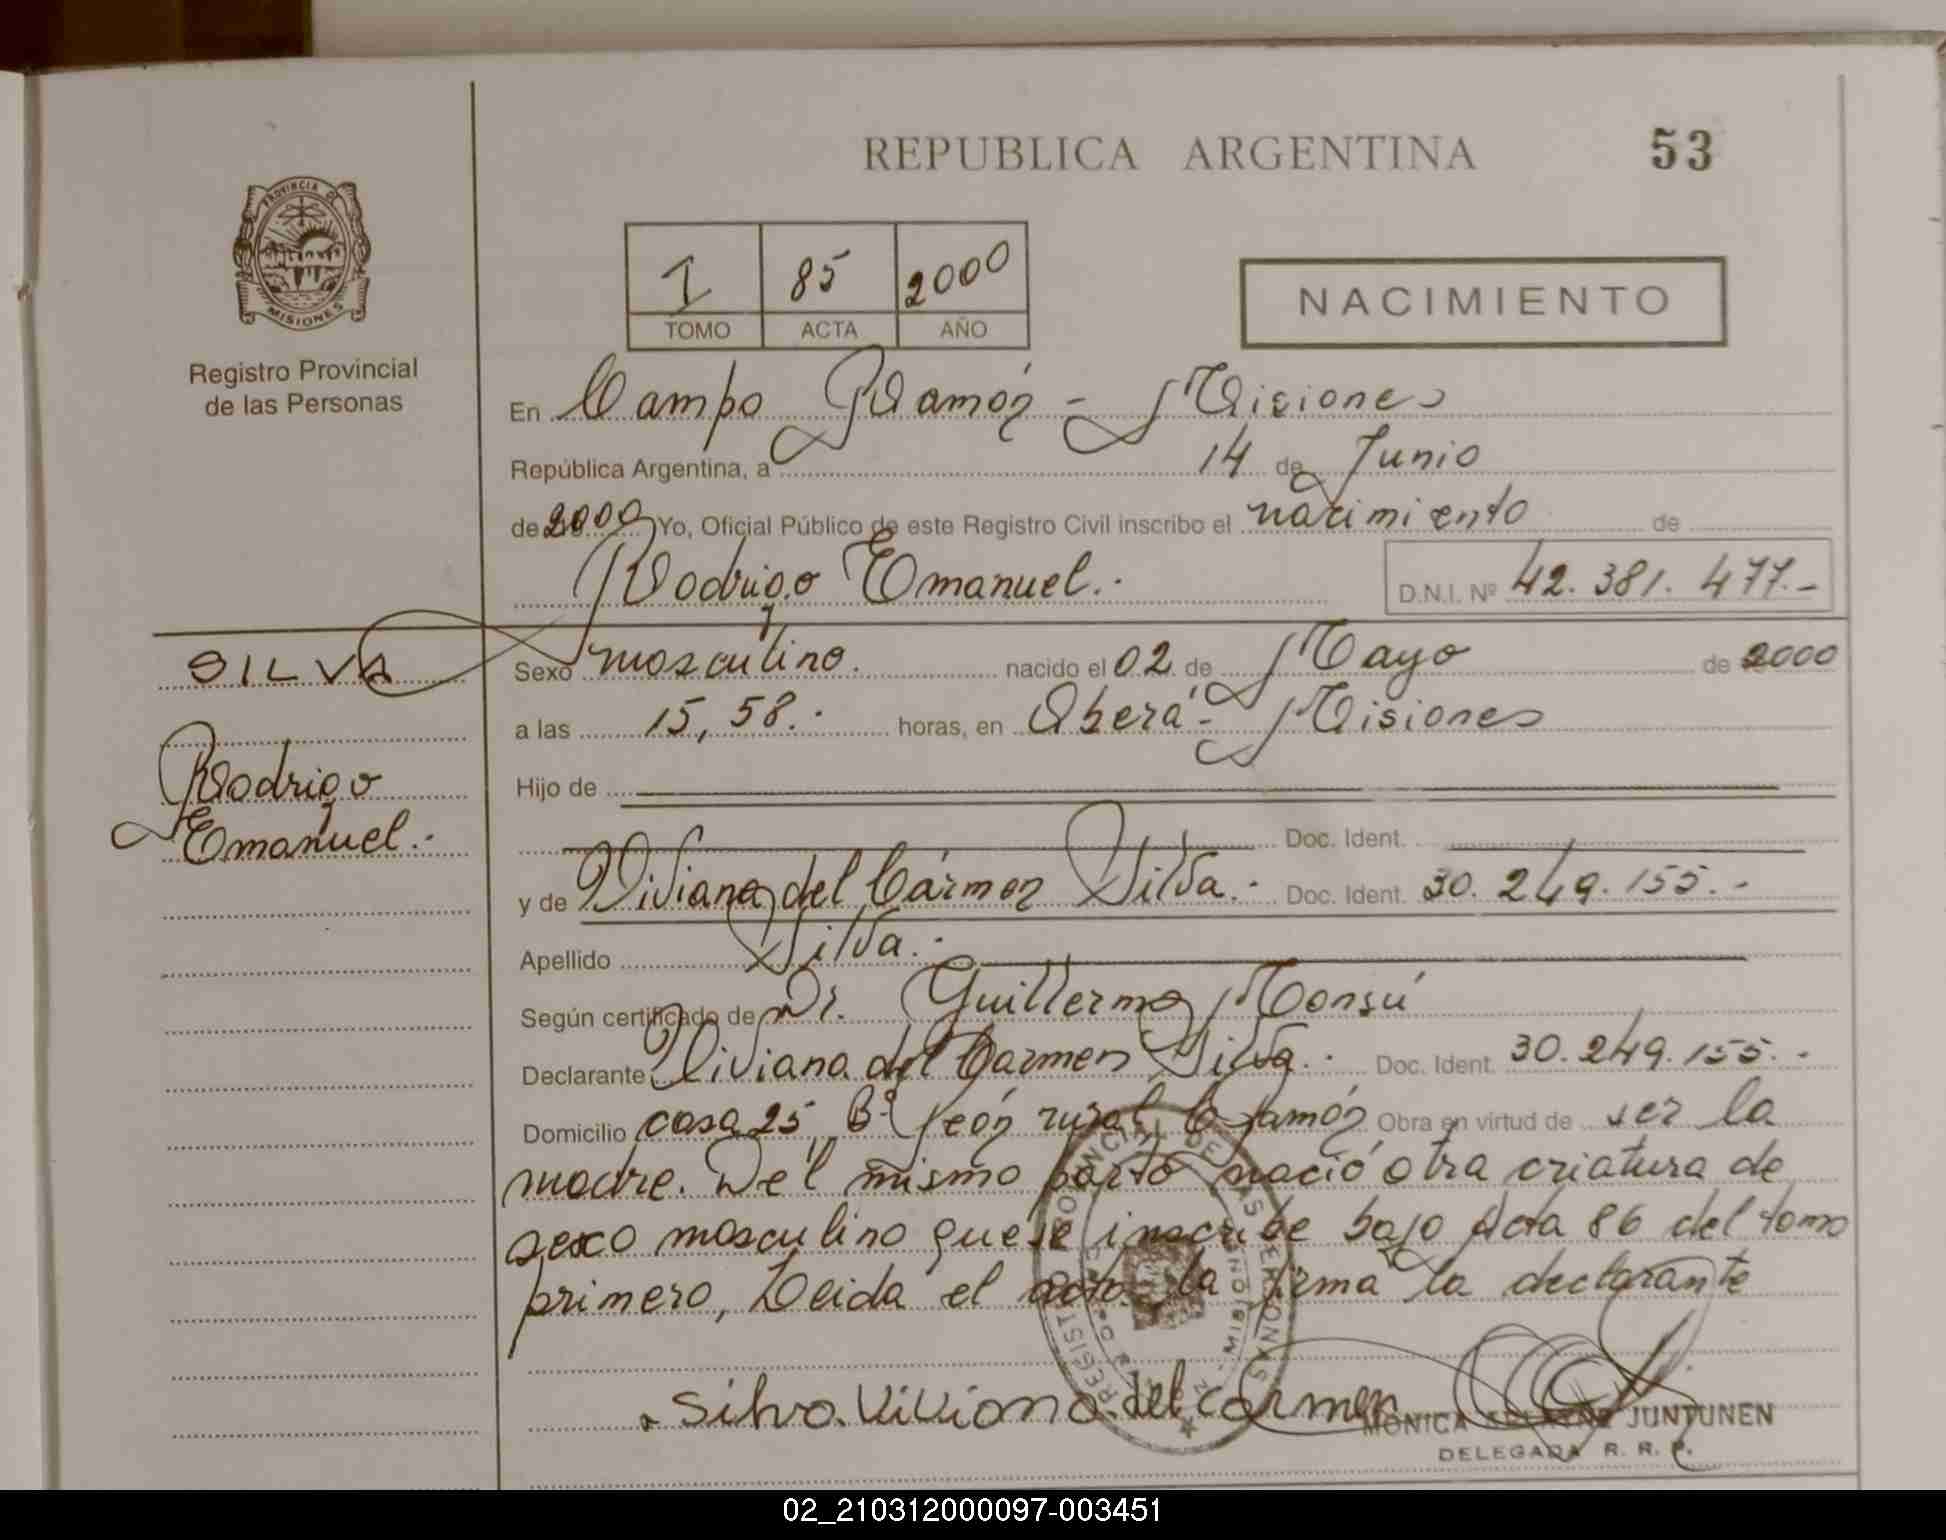 REPUBLICA ARGENTINA 53
PROVINCIA DE
MISIONES
Registro Provincial
de las Personas
I 85 2000
TOMO ACTA AÑO
NACIMIENTO
En Campo Ramón - Misiones
República Argentina, a 14 de Junio
de 2000 Yo, Oficial Público de este Registro Civil inscribo el nacimiento de
Rodrigo Emanuel.- D.N.I. Nº 42.381.477.-
SILVA
Rodrigo
Emanuel.-
Sexo masculino. nacido el 02 de Mayo de 2000
a las 15,58.- horas, en Oberá - Misiones
Hijo de
Doc. Ident.
y de Viviana del Cármen Silva.- Doc. Ident. 30.249.155.-
Apellido Silva.-
Según certificado de Dr. Guillermo Monsú
Declarante Viviana del Carmen Silva.- Doc. Ident. 30.249.155.-
Domicilio casa 25 Bº Peón rural, C. Ramón Obra en virtud de ser la
madre. Del mismo parto nació otra criatura de
sexo masculino que se inscribe bajo Acta 86 del tomo
primero, Leida el acta la firma la declarante
Silva. Viviana. del carmen
MONICA JUNTUNEN
DELEGADA R. R. P.
02_210312000097-003451